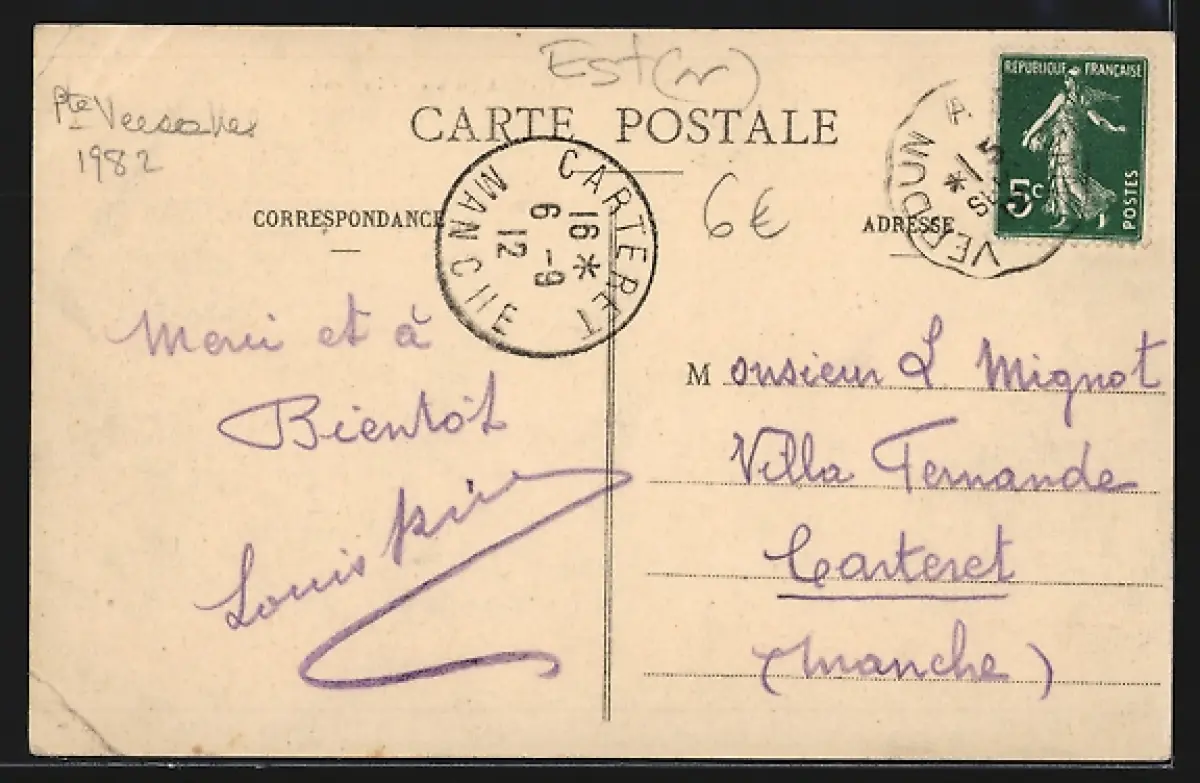 Est (n)
Pte Versailles
1982
CARTE POSTALE
REPUBLIQUE FRANÇAISE
5c
POSTES
VERDUN A
CARTERET
16 *
6 - 9
12
MANCHE
6€
CORRESPONDANCE
ADRESSE
Merci et à
Bientôt
Louis
Monsieur L Mignot
Villa Fernande
Carteret
(Manche)